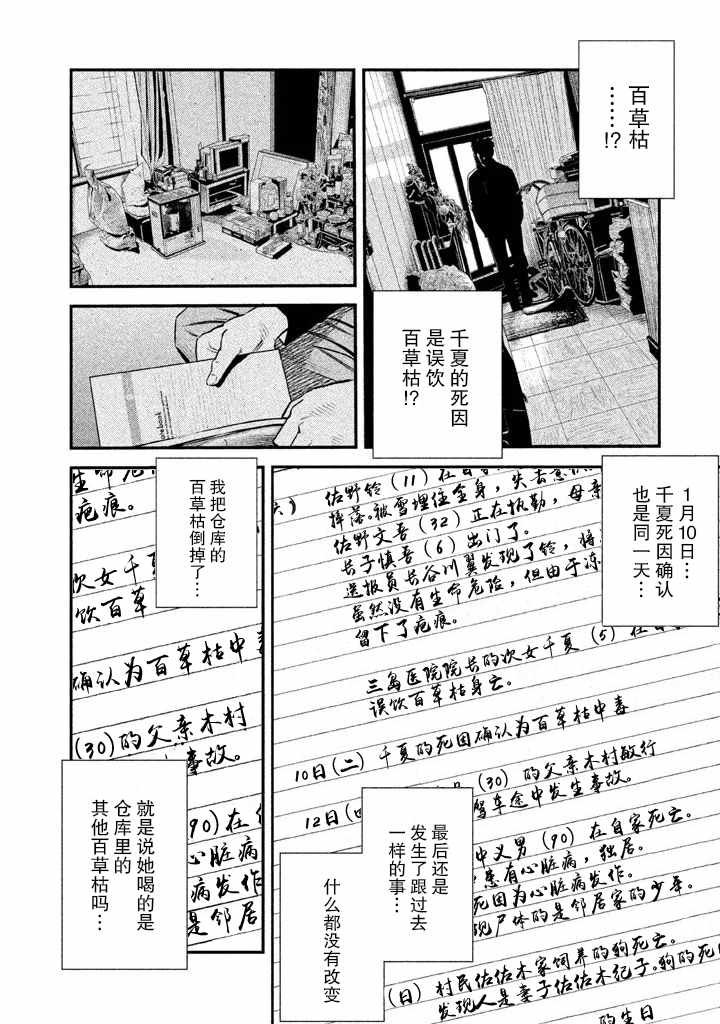 百草枯
……!?
千夏的死因
是误饮
百草枯!?
notebook
1月10日…
千夏死因确认
也是同一天…
我把仓库的
百草枯倒掉了…
佐野铃(11)在自
摔落。被雪埋住全身，失去意
佐野文吾(32)正在执勤，母亲
长子慎吾(6)出门了。
送报员长谷川翼发现了铃，将
虽然没有生命危险，但由于冻
留下了疤痕。
三岛医院院长的次女千夏(5)在自
误饮百草枯身亡。
10日(二) 千夏的死因确认为百草枯中毒
12日(四
(30)的父亲木村敏行
驾车途中发生事故。
中义男(90)在自家死亡。
患有心脏病，独居。
死因为心脏病发作。
现尸体的是邻居家的少年。
(日) 村民佐佐木家饲养的狗死亡。
发现人是妻子佐佐木纪子。狗的死
的生日
生命危
疤痕。
次女千夏
饮百草
确认为百草枯中毒
(30)的父亲木村
事故。
90)在
心脏病
病发作
是邻居
最后还是
发生了跟过去
一样的事…
什么都没有
改变
就是说她喝的是
仓库里的
其他百草枯吗…